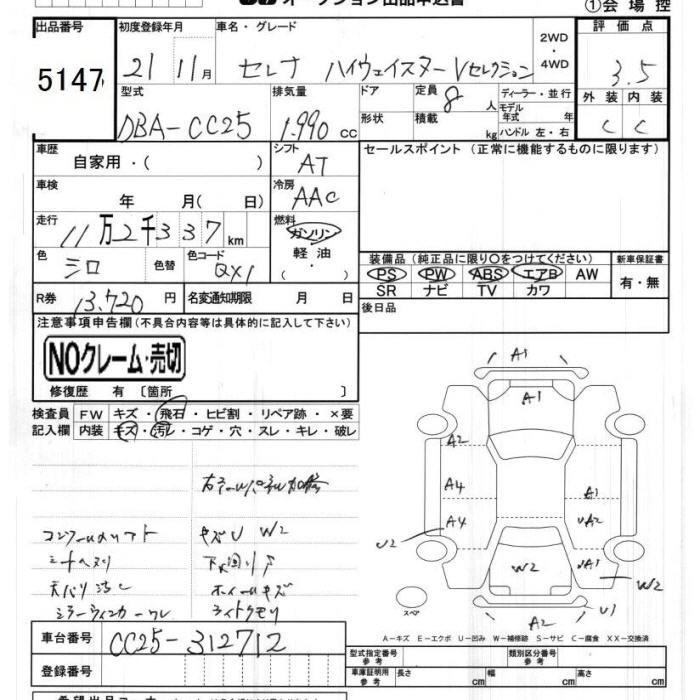 オークション出品申込書 ①会場控
出品番号 初度登録年月 車名・グレード 2WD・4WD 評価点
5147 21 11月 セレナ ハイウェイスター Vセレクション 3.5
型式 排気量 ドア 定員 8人 ディーラー・並行 外装 内装
DBA-CC25 1.990 cc 形状 積載 kg モデル年式 年 ハンドル 左・右 C C
車歴 自家用・( ) シフト AT セールスポイント (正常に機能するものに限ります)
車検 年 月(日) 冷房 AAC
走行 11万2千337km 燃料 ガソリン・軽油
( ・ )
色 シロ 色替 色コード QX1 装備品 (純正品に限り○をつけてください) 新車保証書
PS PW ABS エアB AW 有・無
SR ナビ TV カワ
R券 13,720円 名変通知期限 月 日 後日品
注意事項申告欄(不具合内容等は具体的に記入して下さい)
NOクレーム・売切
修復歴 有 〔箇所 〕
検査員 FW キズ・飛石・ヒビ割・リペア跡・×要
記入欄 内装 キズ・汚レ・コゲ・穴・スレ・キレ・破レ
コンソール キズU W2
シートヘタリ 下回リサ
天バリ ホイールキズ
ミラーウィンカーワレ ライトクモリ
A1
A1
A2
A4 A1
A4 UA2
U2 W2 UA1 W2
U1
A2
スペア
A-キズ E-エクボ U-凹み W-補修跡 S-サビ C-腐食 XX-交換済
車台番号 CC25-312712
型式指定番号 参考 類別区分番号 参考
登録番号 車庫証明用 参考 長さ cm 幅 cm 高さ cm
希望出品コーナー